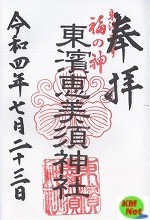 奉拝
福の神
東濱恵美須神社
令和四年七月二十三日
KM
Net